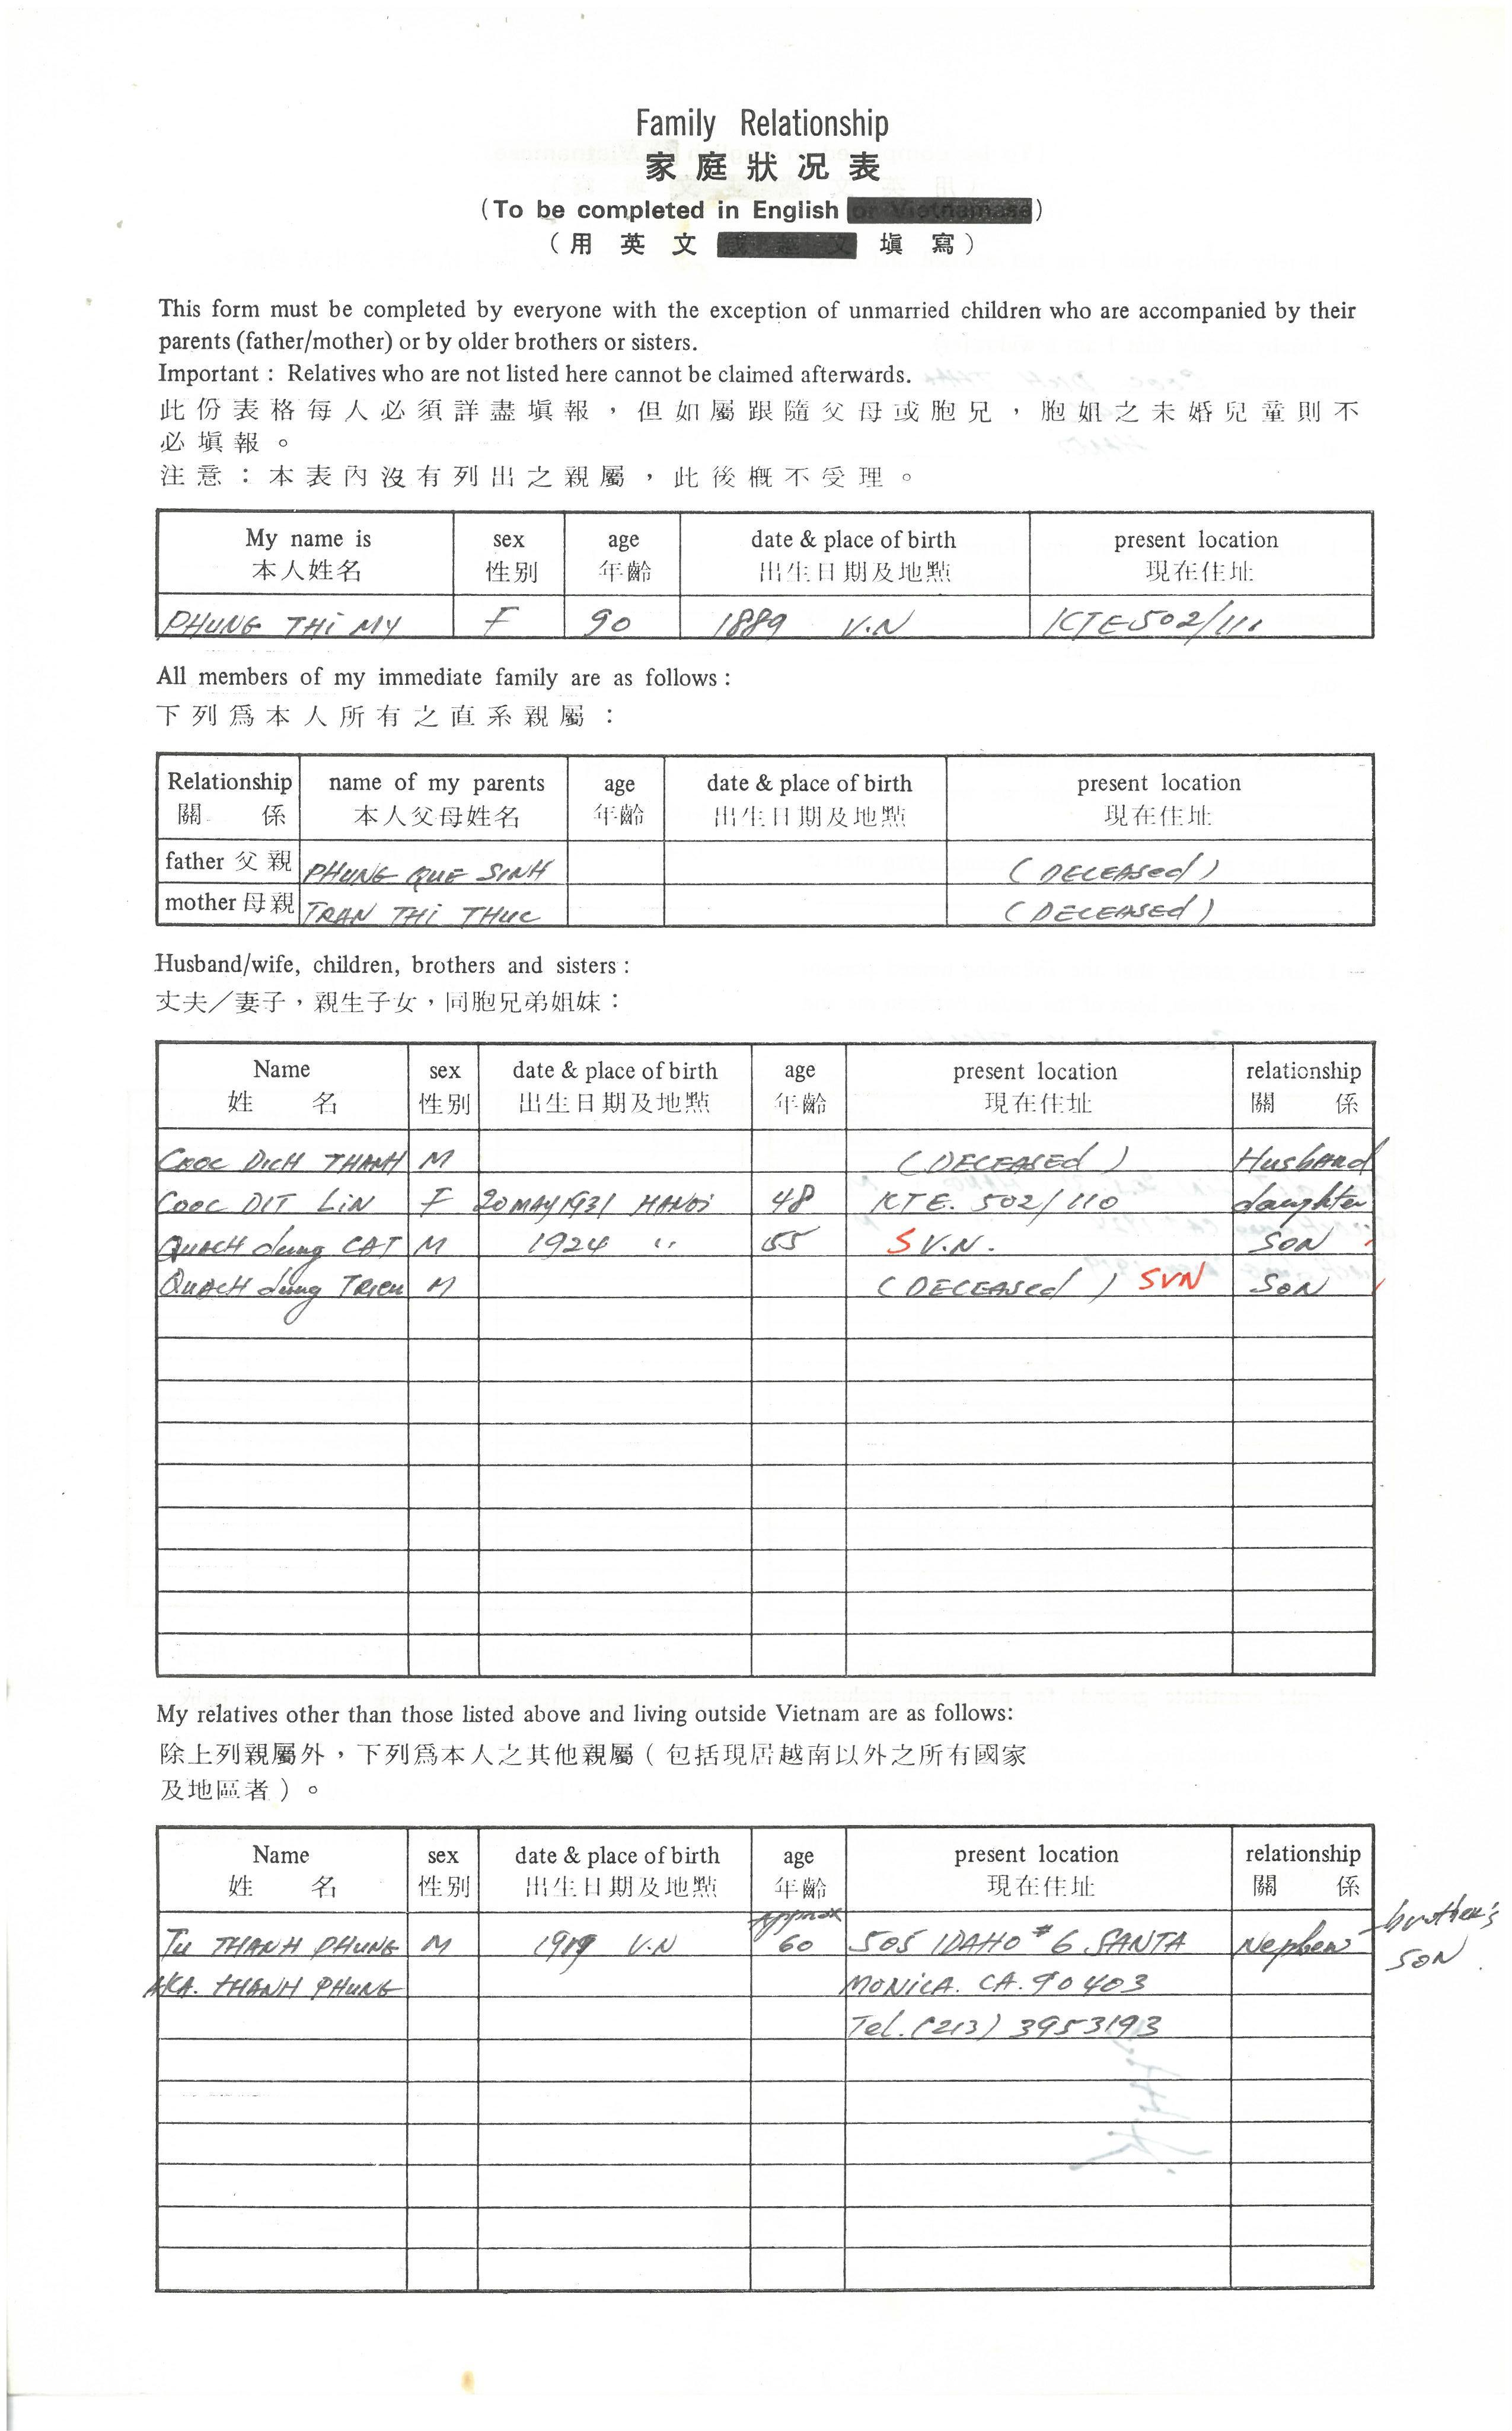 Family Relationship
家庭狀況表
(To be completed in English or Vietnamese)
(用英文或越文填寫)
This form must be completed by everyone with the exception of unmarried children who are accompanied by their
parents (father/mother) or by older brothers or sisters.
Important : Relatives who are not listed here cannot be claimed afterwards.
此份表格每人必須詳盡填報，但如屬跟隨父母或胞兄，胞姐之未婚兒童則不
必填報。
注意：本表內沒有列出之親屬，此後概不受理。
My name is sex age date & place of birth present location
本人姓名 性別 年齡 出生日期及地點 現在住址
PHUNG THI MY F 90 1889 V.N KTE 502/111
All members of my immediate family are as follows :
下列爲本人所有之直系親屬：
Relationship name of my parents age date & place of birth present location
關係 本人父母姓名 年齡 出生日期及地點 現在住址
father 父親 PHUNG QUE SINH (DECEASED)
mother 母親 TRAN THI THUC (DECEASED)
Husband/wife, children, brothers and sisters :
丈夫／妻子，親生子女，同胞兄弟姐妹：
Name sex date & place of birth age present location relationship
姓名 性別 出生日期及地點 年齡 現在住址 關係
COOC DICH THANH M (DECEASED) Husband
COOC DIT LIN F 20 MAY 1931 HANOI 48 KTE. 502/110 daughter
QUACH dung CAT M 1924 " 55 S V.N. SON
QUACH dung TRIEU M (DECEASED) SVN SON
My relatives other than those listed above and living outside Vietnam are as follows:
除上列親屬外，下列爲本人之其他親屬（包括現居越南以外之所有國家
及地區者）。
Name sex date & place of birth age present location relationship
姓名 性別 出生日期及地點 年齡 現在住址 關係
Approx brother's
TU THANH PHUNG M 1919 V.N 60 505 IDAHO #6 SANTA Nephew SON
AKA. THANH PHUNG MONICA. CA. 90403
Tel. (213) 3953193